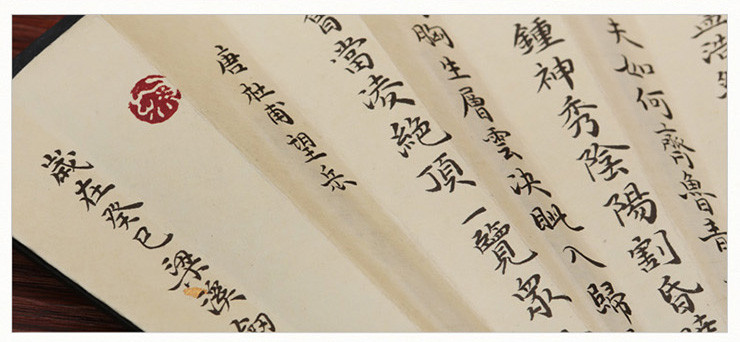 孟浩
夫如何齊魯青
鍾神秀陰陽割昏
胸生層雲决眦入歸
當凌絕頂一覽眾
唐杜甫望岳
歲在癸巳梁溪